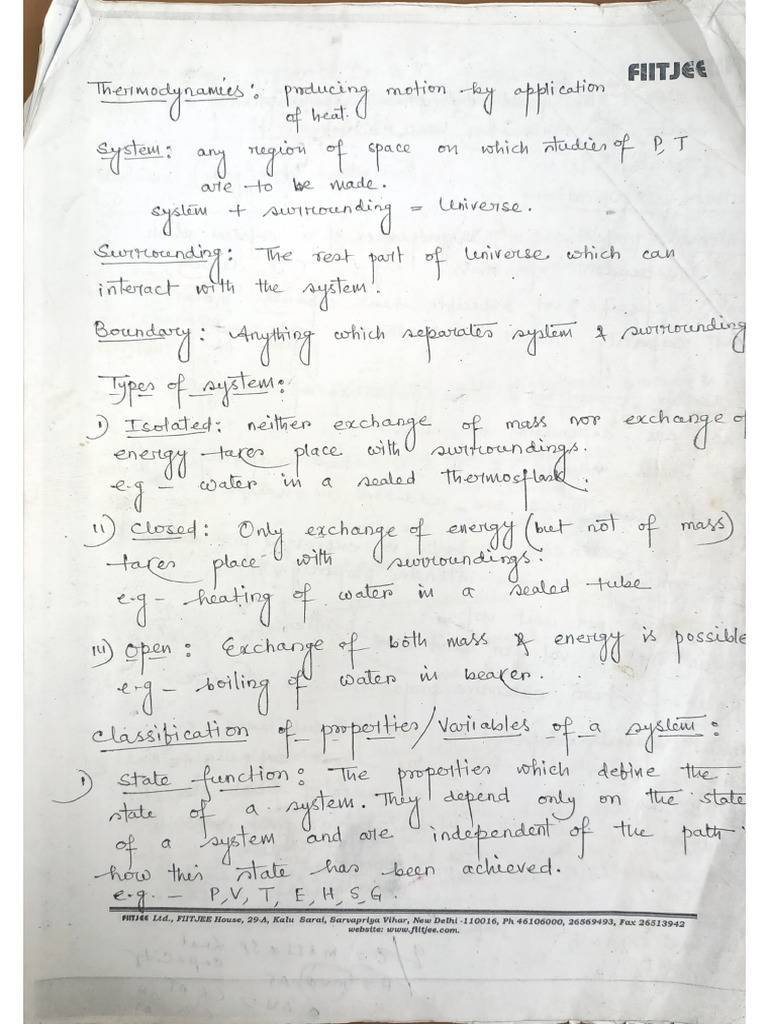 FIITJEE
Thermodynamics: producing motion by application
of heat.
System: any region of space on which studies of P, T
are to be made.
system + surrounding = Universe.
Surrounding: The rest part of Universe which can
interact with the system.
Boundary: Anything which separates system & surrounding
Types of system:
i) Isolated: neither exchange of mass nor exchange of
energy takes place with surroundings.
e.g - water in a sealed Thermosflask.
ii) Closed: Only exchange of energy (but not of mass)
takes place with surroundings.
e.g - heating of water in a sealed tube
iii) Open: Exchange of both mass & energy is possible
e.g - boiling of water in beaker.
Classification of properties/Variables of a system:
i) State function: The properties which define the
state of a system. They depend only on the state
of a system and are independent of the path
how this state has been achieved.
e.g. - P, V, T, E, H, S, G.
FIITJEE Ltd., FIITJEE House, 29-A, Kalu Sarai, Sarvapriya Vihar, New Delhi -110016, Ph 46106000, 26569493, Fax 26513942
website: www.fiitjee.com.